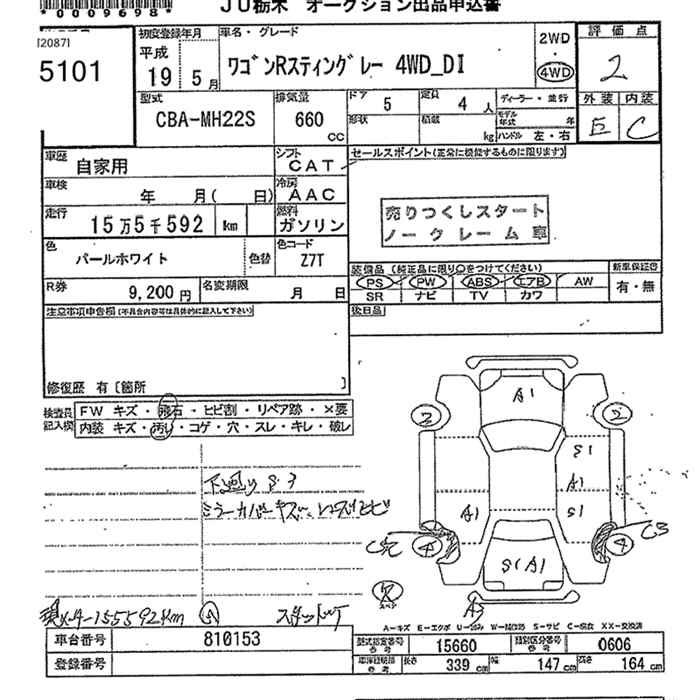 *0009698*
JU栃木 オークション出品申込書
[2087]
5101
初度登録年月
平成
19年 5月
車名・グレード
ワゴンRスティングレー 4WD_DI
2WD
・
4WD
評価点
2
外装 内装
E C
型式
CBA-MH22S
排気量
660
CC
ドア 5
定員 4 人
形状
積載 kg
ディーラー・並行
モデル年式 年
ハンドル 左・右
車歴
自家用
シフト
CAT
車検
年 月( 日)
冷房
AAC
走行
15万5千592 km
燃料
ガソリン
色
パールホワイト
色替
色コード
Z7T
R券
9,200円
名変期限
月 日
セールスポイント(正常に機能するものに限ります)
売りつくしスタート
ノークレーム車
装備品(純正品に限り○をつけてください)
PS PW ABS エアB AW
SR ナビ TV カワ
新車保証書
有・無
後日品
注意事項申告欄(不具合内容等は具体的に記入して下さい)
修復歴 有〔箇所 〕
検査員
記入欄
FW キズ・飛石・ヒビ割・リペア跡・×要
内装 キズ・汚れ・コゲ・穴・スレ・キレ・破レ
下廻り S3
ミラーカバーキズ
A1
2
2
S1
A1
A1
S1
4
4
C3
S1 A1
A3
欠
スペア
155592km
5
A-キズ E-エクボ U-凹み W-補修跡 S-サビ C-腐食 XX-交換済
車台番号
810153
登録番号
型式指定番号
参考
15660
類別区分番号
参考
0606
車庫証明用
参考
長さ 339 cm
幅 147 cm
高さ 164 cm